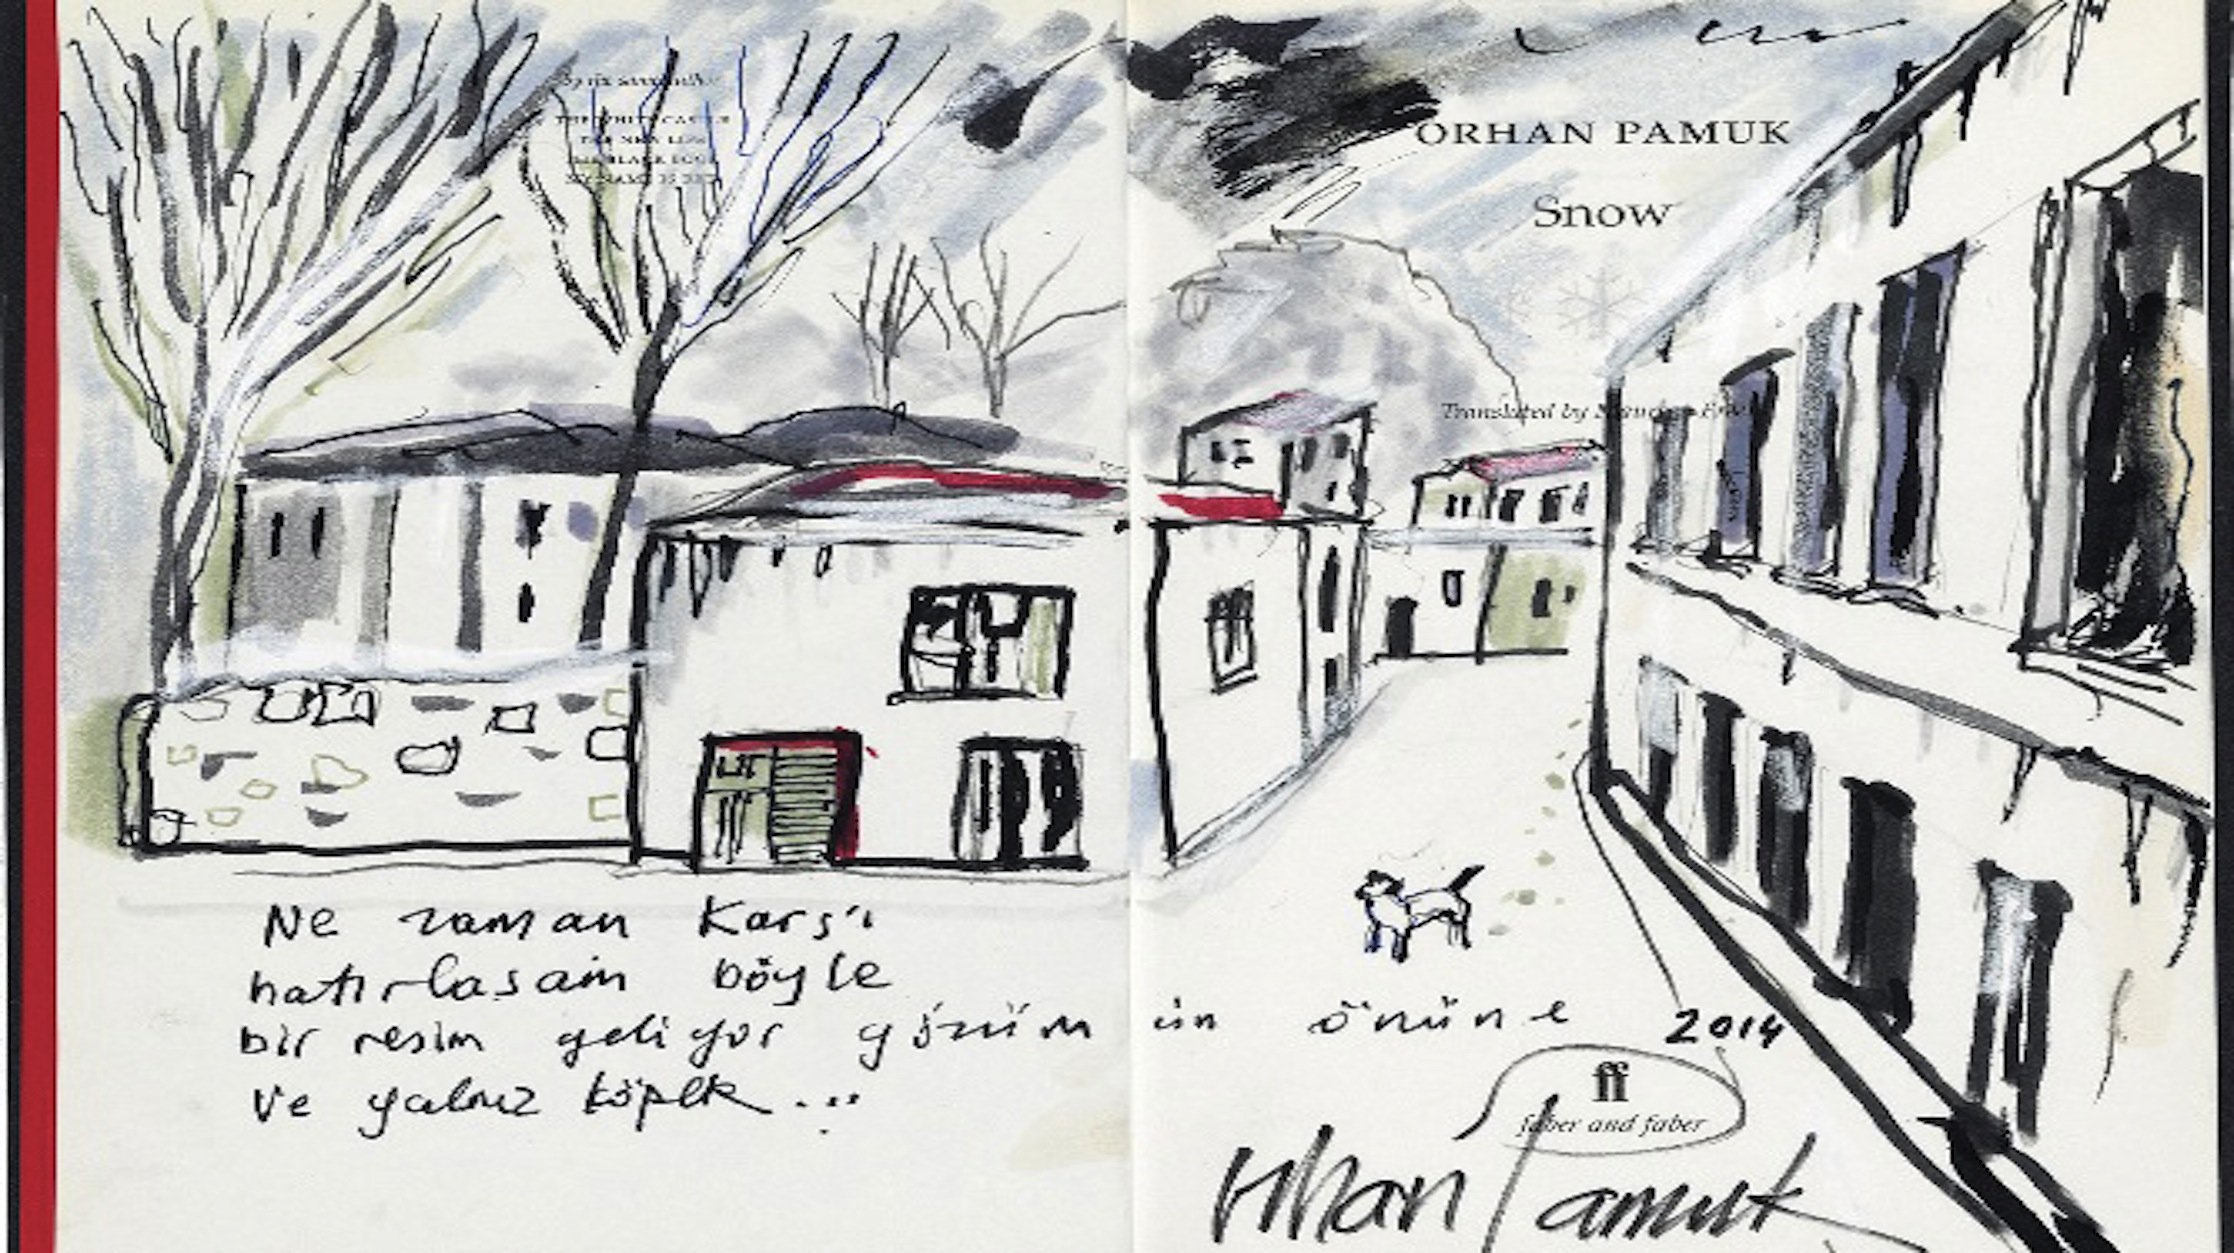 by the same author
THE WHITE CASTLE
THE NEW LIFE
THE BLACK BOOK
MY NAME IS RED
ORHAN PAMUK
Snow
Translated by Maureen
Ne zaman Kars'ı
hatırlasam böyle
bir resim geliyor gözümün önüne 2014
ve yalnız köpek...
ff
faber and faber
Orhan Pamuk